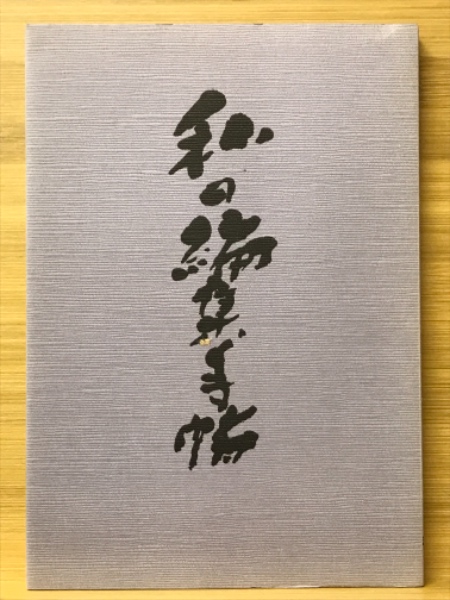 私の編集手帖